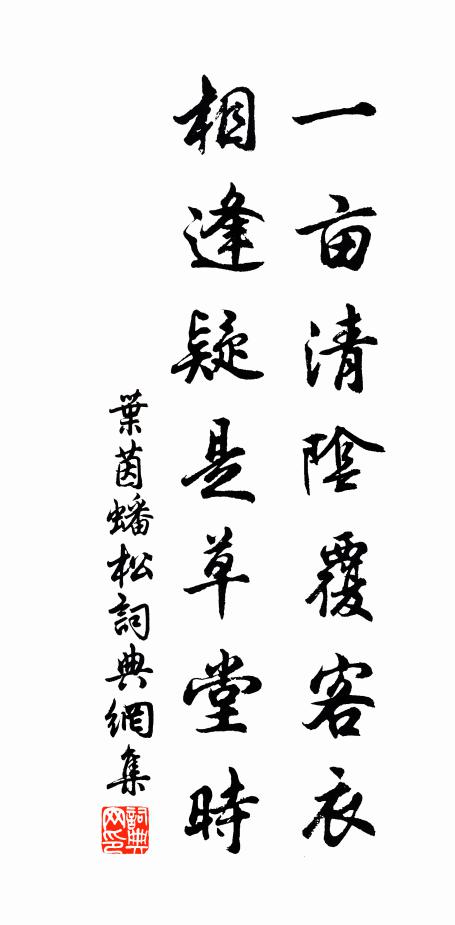 一亩清陰覆客衣
相逢疑是草堂時
葉茵蟠松詞典網集
詞典網印